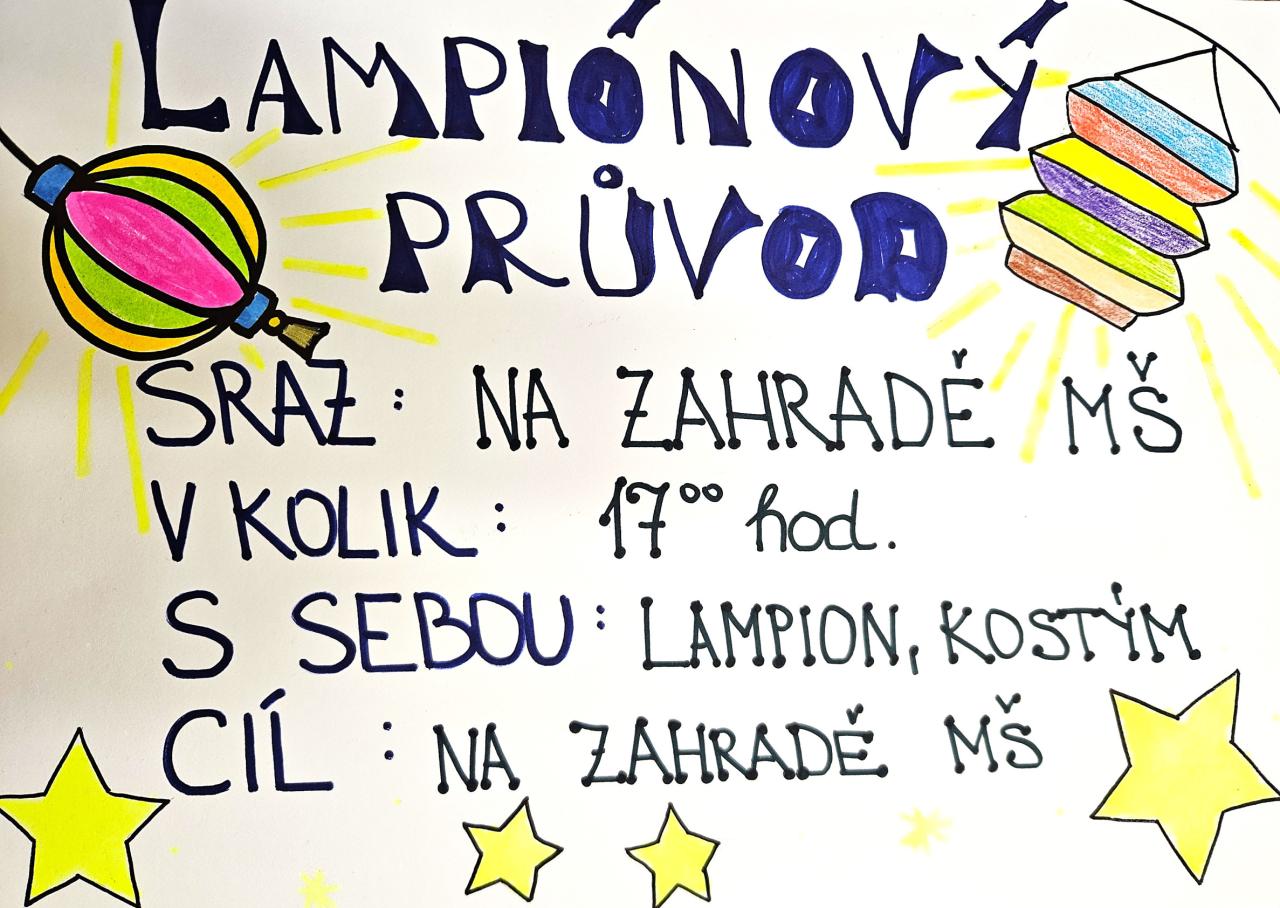 LAMPIÓNOVÝ
PRŮVOD
SRAZ: NA ZAHRADĚ MŠ
V KOLIK: 17⁰⁰ hod.
S SEBOU: LAMPION, KOSTÝM
CÍL : NA ZAHRADĚ MŠ